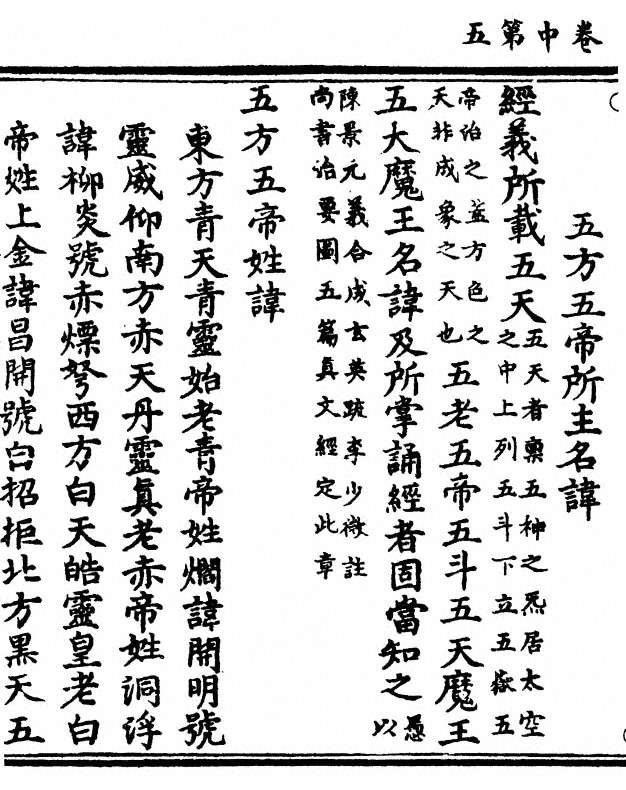 卷中第五
五方五帝所主名諱
經義所載五天五天者稟五神之炁居太空之中上列五斗下立五嶽五
帝治之蓋方色之天非成象之天也五老五帝五斗五天魔王
五大魔王名諱及所掌誦經者固當知之愚以
陳景元義合成玄英䟽李少微註尚書治要圖五篇真文經定此章
五方五帝姓諱
東方青天青靈始老青帝姓爓諱開明號
靈威仰南方赤天丹靈眞老赤帝姓洞浮
諱柳炎號赤熛弩西方白天皓靈皇老白
帝姓上金諱昌開號白招拒北方黑天五